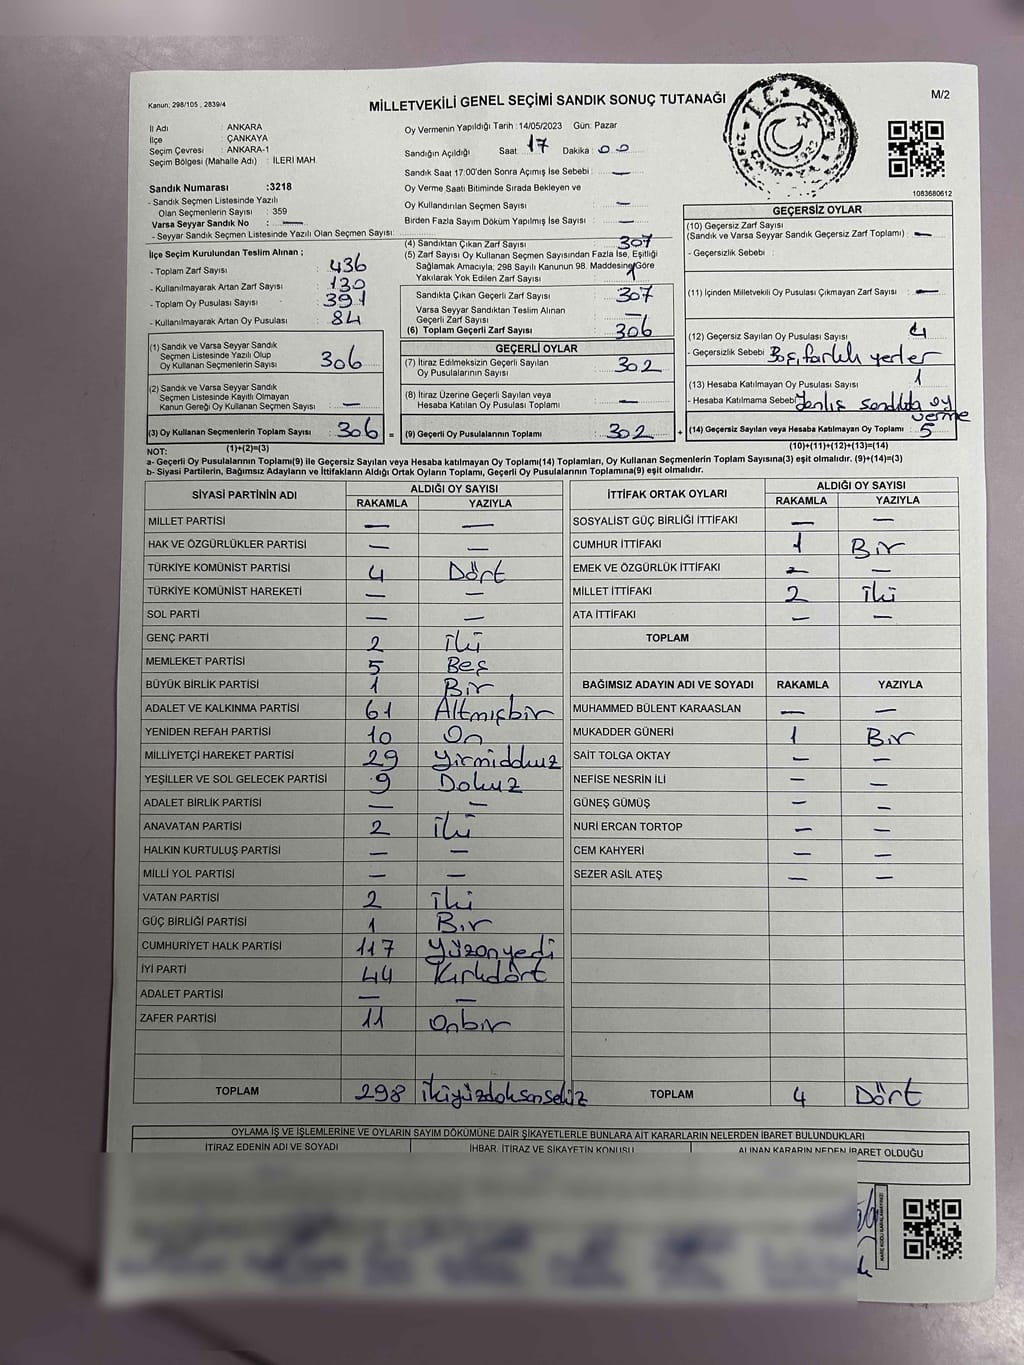 Kanun; 298/105 , 2839/4
MİLLETVEKİLİ GENEL SEÇİMİ SANDIK SONUÇ TUTANAĞI
M/2
İl Adı : ANKARA
İlçe : ÇANKAYA
Seçim Çevresi : ANKARA-1
Seçim Bölgesi (Mahalle Adı) : İLERİ MAH.
Oy Vermenin Yapıldığı Tarih :14/05/2023 Gün: Pazar
Sandığın Açıldığı Saat: 17 Dakika : 00
Sandık Saat 17:00'den Sonra Açımış İse Sebebi : —
Oy Verme Saati Bitiminde Sırada Bekleyen ve
Oy Kullandırılan Seçmen Sayısı : —
Birden Fazla Sayım Döküm Yapılmış İse Sayısı : —
1083680612
Sandık Numarası :3218
- Sandık Seçmen Listesinde Yazılı
Olan Seçmenlerin Sayısı : 359
Varsa Seyyar Sandık No : —
- Seyyar Sandık Seçmen Listesinde Yazılı Olan Seçmen Sayısı:
İlçe Seçim Kurulundan Teslim Alınan ;
- Toplam Zarf Sayısı : 436
- Kullanılmayarak Artan Zarf Sayısı : 130
- Toplam Oy Pusulası Sayısı : 391
- Kullanılmayarak Artan Oy Pusulası : 84
(1) Sandık ve Varsa Seyyar Sandık
Seçmen Listesinde Yazılı Olup
Oy Kullanan Seçmenlerin Sayısı : 306
(2) Sandık ve Varsa Seyyar Sandık
Seçmen Listesinde Kayıtlı Olmayan
Kanun Gereği Oy Kullanan Seçmen Sayısı : —
(3) Oy Kullanan Seçmenlerin Toplam Sayısı : 306 =
(1)+(2)=(3)
(4) Sandıktan Çıkan Zarf Sayısı : 307
(5) Zarf Sayısı Oy Kullanan Seçmen Sayısından Fazla İse, Eşitliği
Sağlamak Amacıyla; 298 Sayılı Kanunun 98. Maddesine Göre
Yakılarak Yok Edilen Zarf Sayısı : 1
Sandıkta Çıkan Geçerli Zarf Sayısı : 307
Varsa Seyyar Sandıktan Teslim Alınan
Geçerli Zarf Sayısı : —
(6) Toplam Geçerli Zarf Sayısı : 306
GEÇERLİ OYLAR
(7) İtiraz Edilmeksizin Geçerli Sayılan
Oy Pusulalarının Sayısı : 302
(8) İtiraz Üzerine Geçerli Sayılan veya
Hesaba Katılan Oy Pusulası Toplamı : —
(9) Geçerli Oy Pusulalarının Toplamı : 302 +
GEÇERSİZ OYLAR
(10) Geçersiz Zarf Sayısı
(Sandık ve Varsa Seyyar Sandık Geçersiz Zarf Toplamı) : —
- Geçersizlik Sebebi :
(11) İçinden Milletvekili Oy Pusulası Çıkmayan Zarf Sayısı : —
(12) Geçersiz Sayılan Oy Pusulası Sayısı : 4
- Geçersizlik Sebebi : Boş, farklı yerler
(13) Hesaba Katılmayan Oy Pusulası Sayısı : 1
- Hesaba Katılmama Sebebi: Yanlış sandıkta oy
verme
(14) Geçersiz Sayılan veya Hesaba Katılmayan Oy Toplamı : 5
(10)+(11)+(12)+(13)=(14)
NOT:
a- Geçerli Oy Pusulalarının Toplamı(9) ile Geçersiz Sayılan veya Hesaba katılmayan Oy Toplamı(14) Toplamları, Oy Kullanan Seçmenlerin Toplam Sayısına(3) eşit olmalıdır. (9)+(14)=(3)
b- Siyasi Partilerin, Bağımsız Adayların ve İttifakların Aldığı Ortak Oyların Toplamı, Geçerli Oy Pusulalarının Toplamına(9) eşit olmalıdır.
SİYASİ PARTİNİN ADI ALDIĞI OY SAYISI
RAKAMLA YAZIYLA
MİLLET PARTİSİ — —
HAK VE ÖZGÜRLÜKLER PARTİSİ — —
TÜRKİYE KOMÜNİST PARTİSİ 4 Dört
TÜRKİYE KOMÜNİST HAREKETİ — —
SOL PARTİ — —
GENÇ PARTİ 2 İki
MEMLEKET PARTİSİ 5 Beş
BÜYÜK BİRLİK PARTİSİ 1 Bir
ADALET VE KALKINMA PARTİSİ 61 Altmışbir
YENİDEN REFAH PARTİSİ 10 On
MİLLİYETÇİ HAREKET PARTİSİ 29 Yirmidokuz
YEŞİLLER VE SOL GELECEK PARTİSİ 9 Dokuz
ADALET BİRLİK PARTİSİ — —
ANAVATAN PARTİSİ 2 İki
HALKIN KURTULUŞ PARTİSİ — —
MİLLİ YOL PARTİSİ — —
VATAN PARTİSİ 2 İki
GÜÇ BİRLİĞİ PARTİSİ 1 Bir
CUMHURİYET HALK PARTİSİ 117 Yüzonyedi
İYİ PARTİ 44 Kırkdört
ADALET PARTİSİ — —
ZAFER PARTİSİ 11 Onbir
TOPLAM 298 İkiyüzdoksansekiz
İTTİFAK ORTAK OYLARI ALDIĞI OY SAYISI
RAKAMLA YAZIYLA
SOSYALİST GÜÇ BİRLİĞİ İTTİFAKI — —
CUMHUR İTTİFAKI 1 Bir
EMEK VE ÖZGÜRLÜK İTTİFAKI — —
MİLLET İTTİFAKI 2 İki
ATA İTTİFAKI — —
TOPLAM
BAĞIMSIZ ADAYIN ADI VE SOYADI RAKAMLA YAZIYLA
MUHAMMED BÜLENT KARAASLAN — —
MUKADDER GÜNERİ 1 Bir
SAİT TOLGA OKTAY — —
NEFİSE NESRİN İLİ — —
GÜNEŞ GÜMÜŞ — —
NURİ ERCAN TORTOP — —
CEM KAHYERİ — —
SEZER ASİL ATEŞ — —
TOPLAM 4 Dört
OYLAMA İŞ VE İŞLEMLERİNE VE OYLARIN SAYIM DÖKÜMÜNE DAİR ŞİKAYETLERLE BUNLARA AİT KARARLARIN NELERDEN İBARET BULUNDUKLARI
İTİRAZ EDENİN ADI VE SOYADI İHBAR, İTİRAZ VE ŞİKAYETİN KONUSU ALINAN KARARIN NEDEN İBARET OLDUĞU